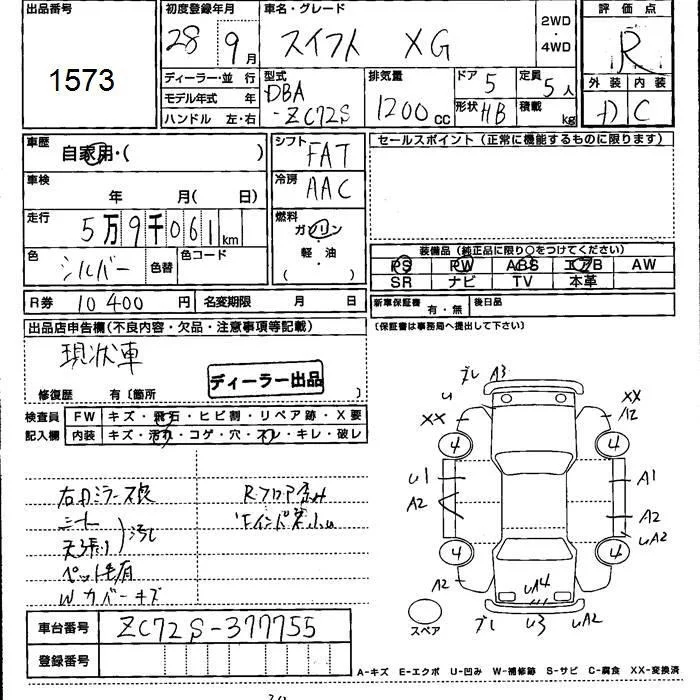 出品番号 初度登録年月 車名・グレード 評価点
1573 28年9月 スイフト XG 2WD・4WD R
ディーラー・並行 型式 排気量 ドア 5 定員 5人 外装 内装
モデル年式 年 DBA 1200cc 形状 HB 積載 kg D C
ハンドル 左・右 -ZC72S
車歴 自家用・( ) シフト FAT セールスポイント(正常に機能するものに限ります)
車検 年 月( 日) 冷房 AAC
走行 5万9千061km 燃料 ガソリン
軽・油
( )
色 シルバー 色替 色コード
装備品(純正品に限り○をつけてください)
PS PW ABS エアB AW
SR ナビ TV 本革
R券 10400円 名変期限 月 日 新車保証書 有・無 後日品
(保証書は事務局へ提出して下さい)
出品店申告欄(不良内容・欠品・注意事項等記載)
現状車
ディーラー出品
修復歴 有〔箇所 〕
検査員 FW キズ・飛石・ヒビ割・リペア跡・X要
記入欄 内装 キズ・汚れ・コゲ・穴・スレ・キレ・破レ
右ドミラー
シート
天張り 汚れ
ペット毛有
Wカバーキズ
Rフロア
A3
U XX
XX A2
4 4
U1 A1
A2 A2
UA2
4 4
A2 A2
UA4
U3 UA2
スペア
車台番号 ZC72S-377755
登録番号
A-キズ E-エクボ U-凹み W-補修跡 S-サビ C-腐食 XX-変換済